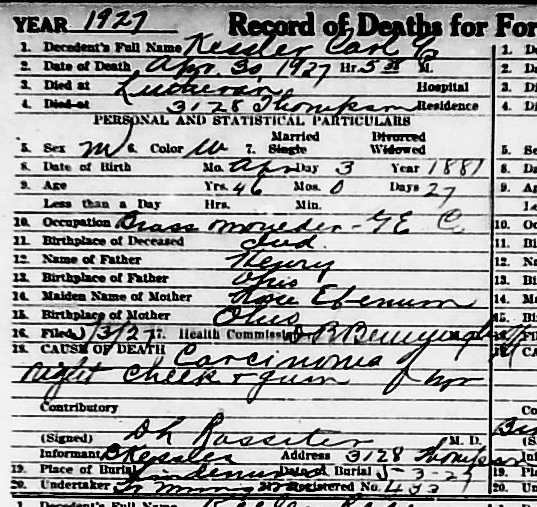 YEAR 1927 Record of Deaths for For
1. Decedent's Full Name Kessler Carl C 1. De
2. Date of Death Apr. 30, 1927 Hr. 5 M. 2. Da
3. Died at Lutheran Hospital 3. Di
4. Died at 3128 Thompson Residence 4. Di
PERSONAL AND STATISTICAL PARTICULARS
Married Divorced
5. Sex M 6. Color W 7. Single Widowed 5. Se
8. Date of Birth Mo. Apr Day 3 Year 1881 8. Da
9. Age Yrs. 46 Mos. 0 Days 27 9. Ag
Less than a Day Hrs. Min.
10. Occupation Brass Moulder - G E Co 10. Oc
11. Birthplace of Deceased Ind. 11. Bi
12. Name of Father Henry 12. Na
13. Birthplace of Father Ohio 13. Bi
14. Maiden Name of Mother Rose 14. Ma
15. Birthplace of Mother Ohio 15. Bi
16. Filed 5/3/27 17. Health Commiss
18. CAUSE OF DEATH Carcinoma of
right cheek & gum 1 yr
Contributory Co
(Signed) D L Rossiter M. D. (Si
Informant Kessler Address 3128 Thompson Inf
19. Place of Burial Lindenwood Date of Burial 5-3-27 19. Pl
20. Undertaker Registered No. 433 20. Un
1. Decedent's Full Name